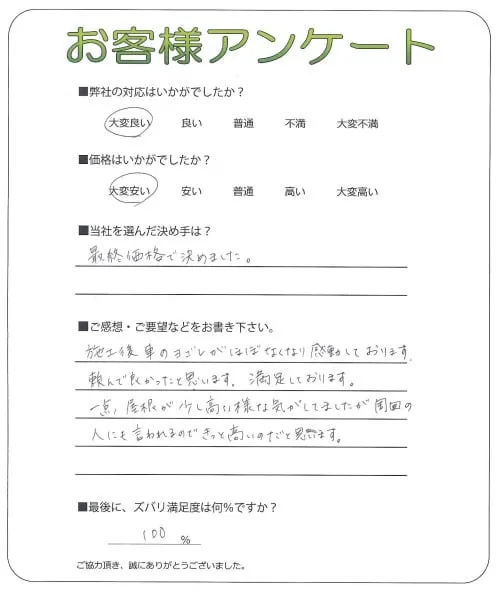 お客様アンケート
■弊社の対応はいかがでしたか？
大変良い 良い 普通 不満 大変不満
■価格はいかがでしたか？
大変安い 安い 普通 高い 大変高い
■当社を選んだ決め手は？
最終価格で決めました。
■ご感想・ご要望などをお書き下さい。
施工後車のヨゴレがほぼなくなり感動しております。
頼んで良かったと思います。満足しております。
一点、屋根が少し高い様な気がしてましたが周囲の
人にも言われるのできっと高いのだと思います。
■最後に、ズバリ満足度は何％ですか？
100 ％
ご協力頂き、誠にありがとうございました。